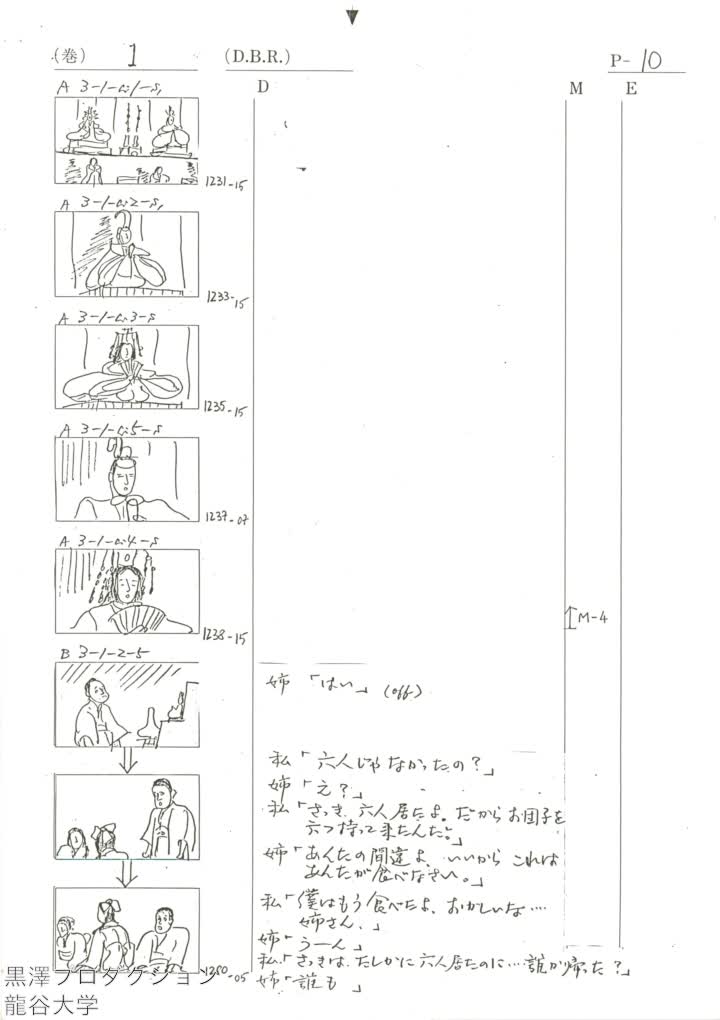 (巻) 1 (D.B.R.) P-10
D M E
A 3-1-C:1-S,
1231-15
A 3-1-C:2-S,
1233-15
A 3-1-C:3-S
1235-15
A 3-1-C:5-S
1237-07
A 3-1-C:4-S
1238-15
M-4
B 3-1-2-5
姉「はい」(off)
私「六人じゃなかったの?」
姉「え?」
私「さっき、六人居たよ。だからお団子を
六つ持って来たんだ。」
姉「あんたの間違よ、いいから これは
あんたが食べなさい。」
私「僕はもう食べたよ、おかしいな…
姉さん、」
姉「うーん」
私「さっきは、たしかに六人居たのに…誰か帰った?」
1250-05
姉「誰も 」
黒澤プロダクション
龍谷大学